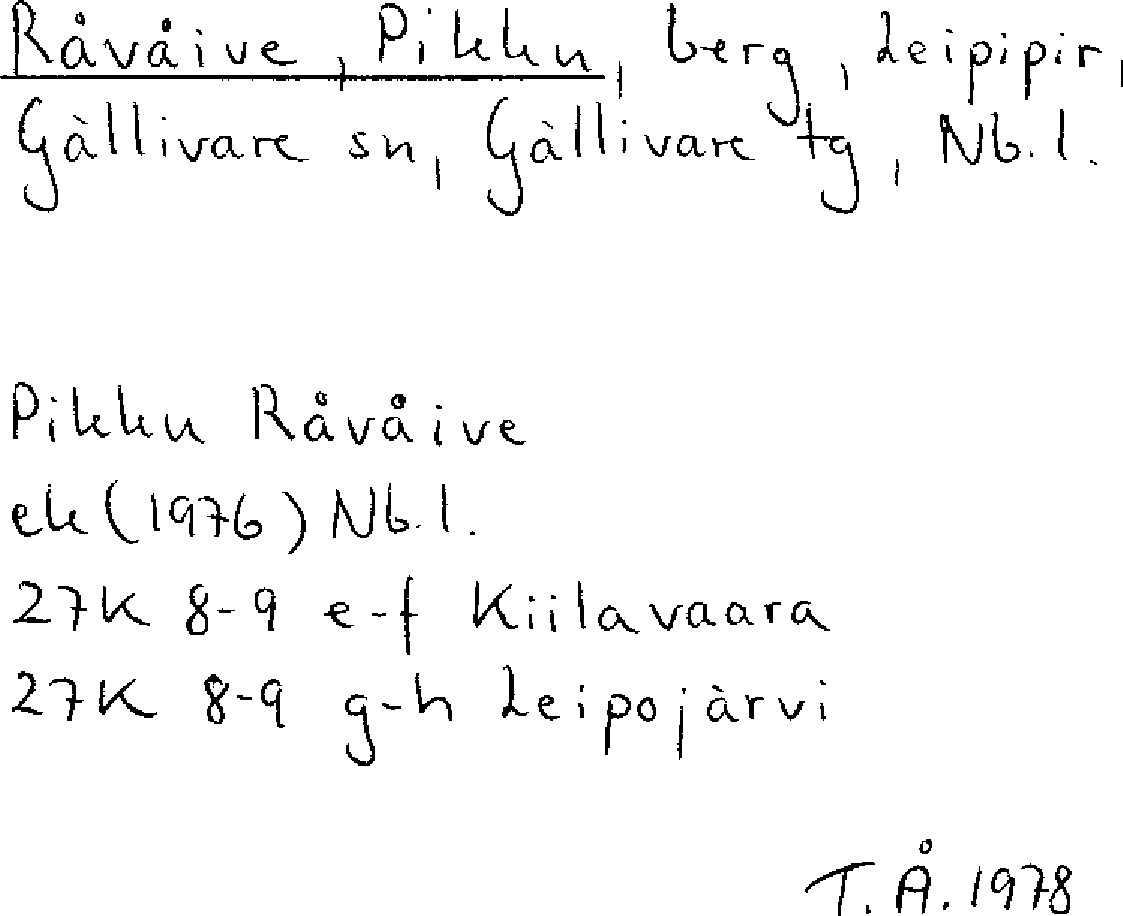 Råvåive, Pikku, berg, Leipipir,
Gällivare sn, Gällivare tg, Nb.l.
Pikku Råvåive
ek (1976) Nb.l.
27K 8-9 e-f Kiilavaara
27K 8-9 g-h Leipojärvi
T.Å. 1978